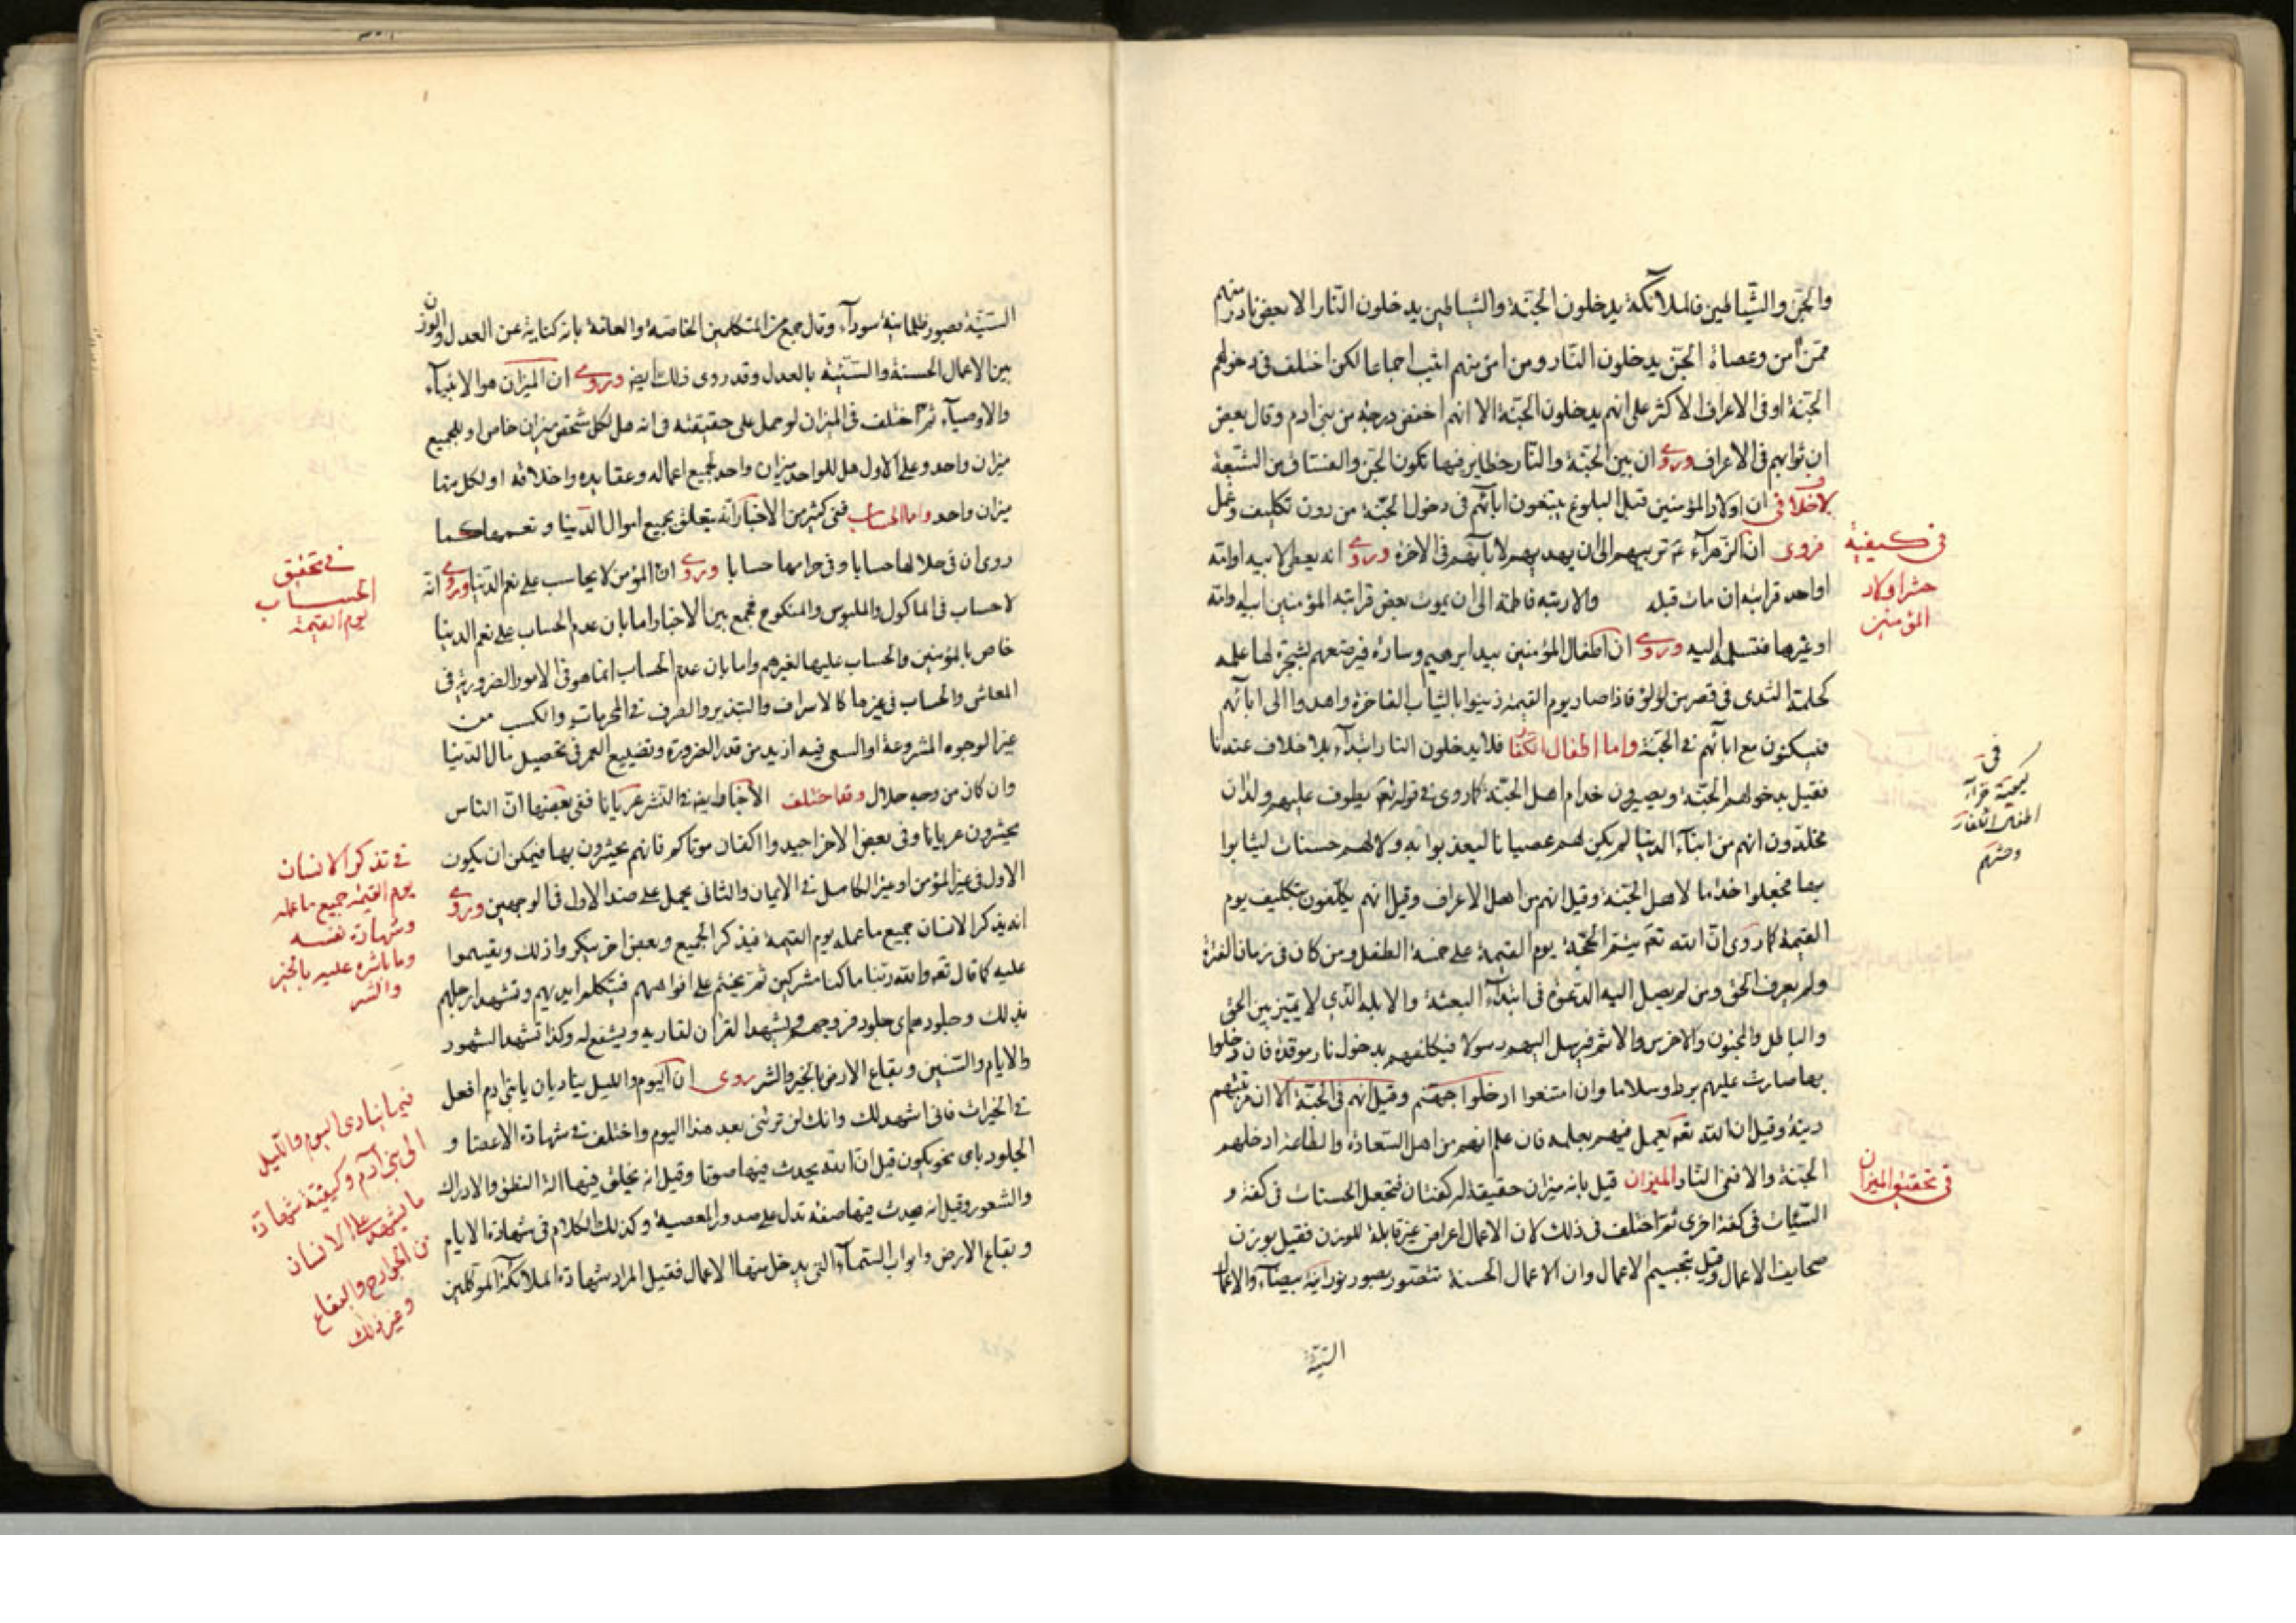 والجن والشياطين فالملائكة يدخلون الجنة والشياطين يدخلون النار الا بعض نادر منهم
ممن آمن وعصاة الجن يدخلون النار ومن امن منهم اثيب اجماعا لكن اختلف في دخولهم
الجنة او في الاعراف الاكثر على انهم يدخلون الجنة الا انهم اخفض درجة من بني ادم وقال بعض
ان ثوابهم في الاعراف وروى ان بين الجنة والنار حظاير فيها تكون الجن والفساق من الشيعة
لا خلاف في ان اولاد المؤمنين قبل البلوغ يتبعون ابائهم في دخول الجنة من دون تكليف وعمل
فروى ان الزهرآء ع تربيهم الى ان يهديهم لابآئهم في الاخرة وروى انه يعطى لابيه او امه
او احد قرابته ان مات قبله والا ربته فاطمة الى ان يموت بعض قرابته المؤمنين ابيه وامه
او غيرها فتسلمه اليه وروى ان اطفال المؤمنين بيد ابرهيم وسارة فيرضعهم بشجرة لها حلمه
كحلمة الثدى في قصر من لؤلؤ فاذا صار يوم القيمة زينوا بالثياب الفاخرة واهدوا الى ابائهم
فيسكنون مع ابائهم في الجنة واما اطفال الكفار فلا يدخلون النار ابتدآء بلا خلاف عندنا
فقيل بدخولهم الجنة ويصيرون خدام اهل الجنة كما روى في قوله تعه يطوف عليهم ولدان
مخلدون انهم من ابنآء الدنيا لم يكن لهم عصيانا ليعذبوا به ولا لهم حسنات ليثابوا
بها فجعلوا خدما لاهل الجنة وقيل انهم من اهل الاعراف وقيل انهم يكلفون بتكليف يوم
القيمة كما روى ان الله تعه يتم الحجة يوم القيمة على خمسة الطفل ومن كان في زمان الفترة
ولم يعرف الحق ومن لم يصل اليه الدعوة في ابتدآء البعثة والابله الذي لا يميز بين الحق
والباطل والمجنون والاخرس والاصم فيرسل اليهم رسولا فيكلفهم بدخول نار موقدة فان دخلوا
بها صارت عليهم بردا وسلاما وان امتنعوا ادخلوا جهنم وقيل انهم في الجنة الا ان مرتبتهم
دنية وقيل ان الله تعه يعمل فيهم بعلمه فان علم انهم من اهل السعادة والطاعة ادخلهم
الجنة والا ففي النار الميزان قيل بانه ميزان حقيقة له كفتان فتجعل الحسنات في كفة و
السيئات في كفة اخرى ثم اختلف في ذلك لان الاعمال اعراض غير قابلة للوزن فقيل يوزن
صحايف الاعمال وقيل بتجسيم الاعمال وان الاعمال الحسنة تتصور بصور نورانية بيضآء والاعمال
السيئة
في كيفية
حشر اولاد
المؤمنين
في
اطفال الكفار
وحشرهم
في تحقيق الميزان
السيئة بصور ظلمانية سودآء وقال جمع من المتكلمين الخاصة والعامة بانه كناية عن العدل والوزن
بين الاعمال الحسنة والسيئة بالعدل وقد روى ذلك ايض وروى ان الميزان هو الانبيآء
والاوصيآء ثم اختلف في الميزان لو حمل على حقيقته في انه هل لكل شخص ميزان خاص او للجميع
ميزان واحد وعلى الاول هل للواحد ميزان واحد لجميع اعماله وعقايده واخلاقه او لكل منها
ميزان واحد واما الحساب ففي كثير من الاخبار انه يتعلق بجميع اموال الدنيا ونعمها كما
روى ان في حلالها حسابا وفي حرامها حسابا وروى ان المؤمن لا يحاسب على نعم الدنيا وروى انه
لا حساب في الماكول والملبوس والمنكوح فجمع بين الاخبار اما بان عدم الحساب على نعم الدنيا
خاص بالمؤمنين والحساب عليها لغيرهم واما بان عدم الحساب انما هو في الامور الضرورية في
المعاش والحساب في غيرها كالاسراف والتبذير والصرف في المحرمات والكسب من
غير الوجوه المشروعة او السعى فيه ازيد من قدر الضرورة وتضييع العمر في تحصيل مال الدنيا
وان كان من وجه حلال وقد اختلف الاخبار ايض في الحشر عريانا ففي بعضها ان الناس
يحشرون عريانا وفي بعض الاخر اجيدوا اكفان موتاكم فانهم يحشرون بها فيمكن ان يكون
الاول في غير المؤمن او غير الكامل في الايمان والثاني يحمل على ضد الاول في الوجهين وروى
انه يذكر الانسان جميع ما عمله يوم القيمة فيذكر الجميع وبعض اخر ينكروا ذلك ويقيموا
عليه كما قال تعه والله ربنا ما كنا مشركين ثم يختم على افواههم فتكلم ايديهم وتشهد ارجلهم
بذلك وجلودهم اى جلود فروجهم ويشهد القران لقاريه ويشفع له وكذا تشهد الشهود
والايام والسنين وبقاع الارض بالخير والشر روى ان اليوم والليل يناديان يا بني ادم افعل
في الخيرات فاني اشهد لك وانك لن ترانى بعد هذا اليوم واختلف في شهادة الاعضا و
الجلود باى نحو يكون قيل ان الله يحدث فيها صوتا وقيل انه يخلق فيها الة النطق والادراك
والشعور وقيل انه يحدث فيها صفة تدل على صدور المعصية وكذلك الكلام في شهادة الايام
وبقاع الارض وابواب السمآء التي يدخل منها الاعمال فقيل المراد شهادة الملائكة الموكلين
في تحقيق
الحساب
يوم القيمة
في تذكر الانسان
يوم القيمة جميع ما عمله
وشهادة نفسه
وما باشره عليه بالخير
والشر
فيما ينادى اليوم والليل
الى بني آدم وكيفية شهادة
ما يشهد على الانسان
من الجوارح والبقاع
وغير ذلك